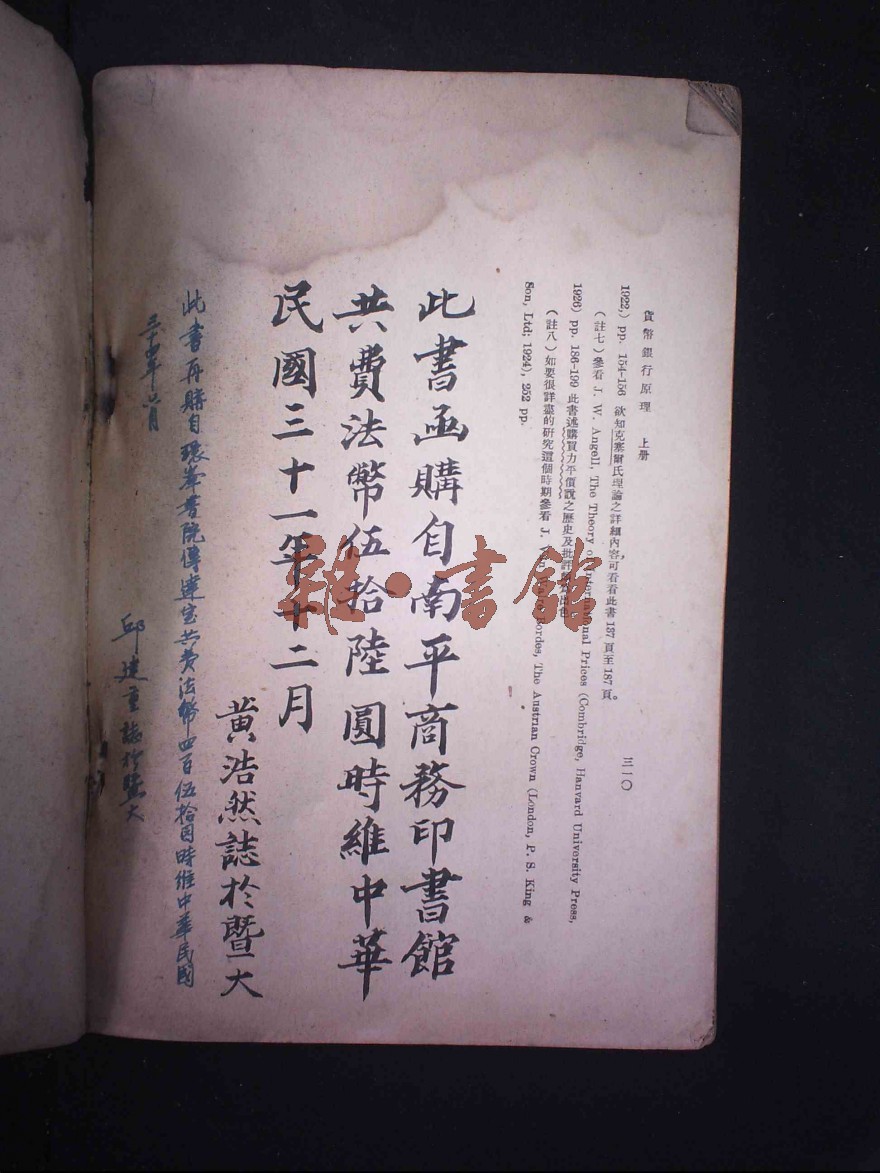 貨幣銀行原理　上册
三一〇
1922,) pp. 154-156 欲知克塞爾氏理論之詳細內容可看看此書137頁至187頁。
(註七)參看 J. W. Angell, The Theory of International Prices (Combridge, Hanvard University Press,
1926) pp. 186-199 此書述購買力平價說之歷史及批評
(註八)如要很詳盡的研究這個時期參看 J. Van Walre Bordes, The Austrian Crown (London, P. S. King &
Son, Ltd; 1924), 252 pp.
此書函購自南平商務印書館
共費法幣伍拾陸圓時維中華
民國三十一年十二月
黃浩然誌於暨大
此書再購自環峯書院傳達室共費法幣四百伍拾圓時維中華民國
三十四年六月
邱建重誌於暨大
雜·書館